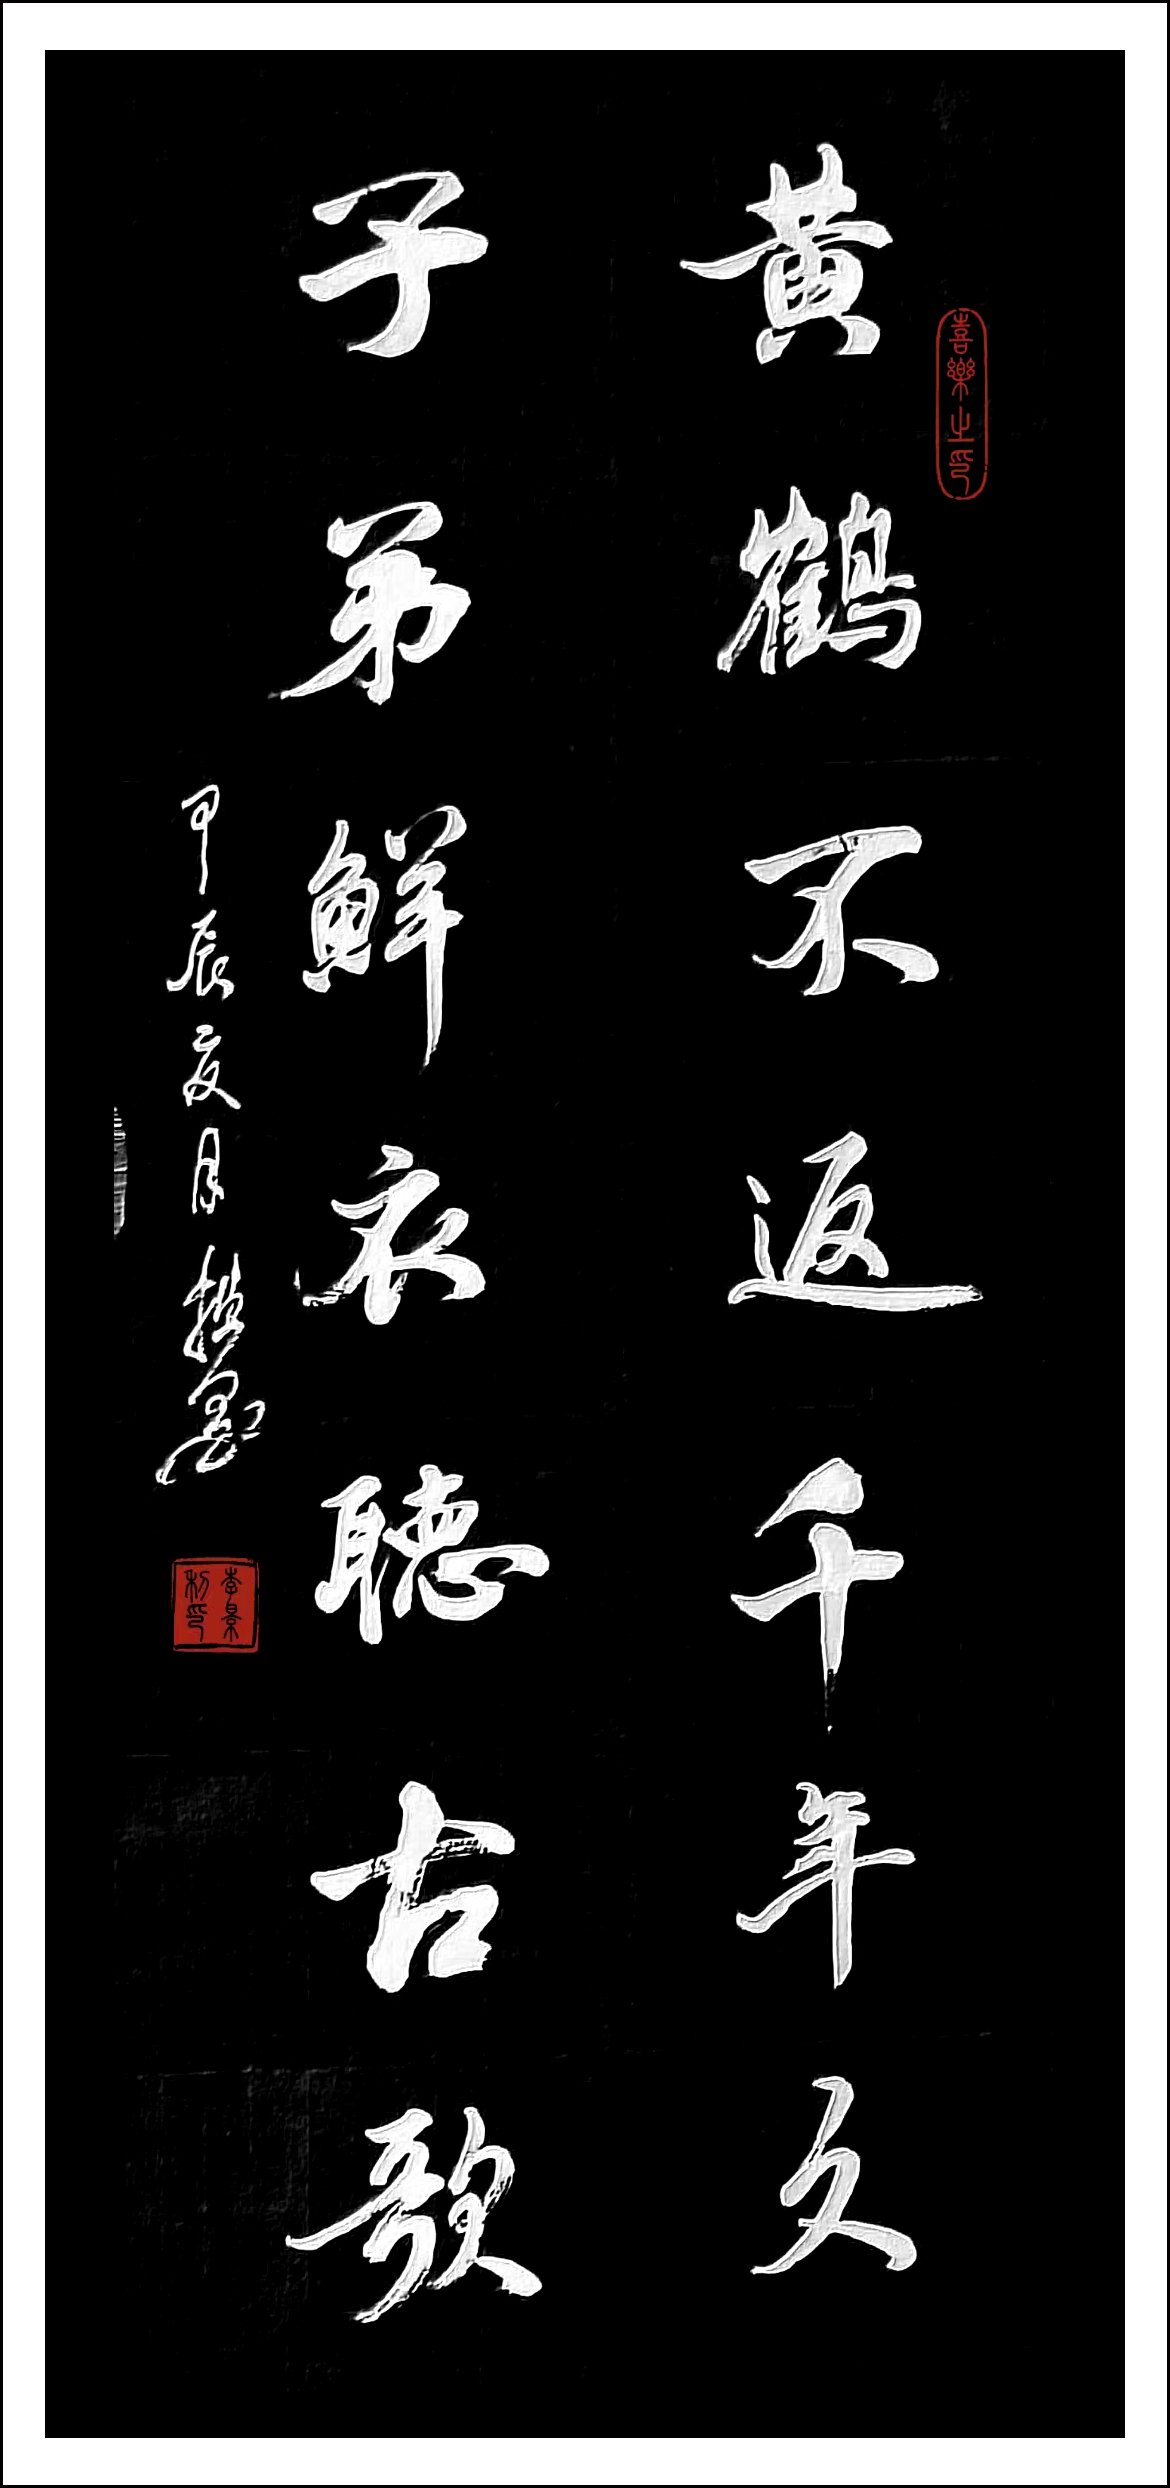 喜樂之印
黃鶴不返千年久
子弟鮮衣聽古歌
甲辰夏月
李景利印